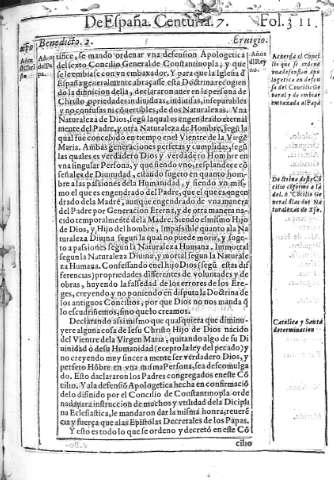 De España. Centuria. 7. Fol. 311.
Benedicto. 2. Eruigio.
tasse, se mando ordenar vna defension Apologetica
del sexto Concilio General de Constantinopla, y que
se le embiasse con vn embaxador. Y para que la Iglesia d
España generalmente abraçasse esta Doctrina confor
do la difinicion della, declararon auer en la persona de
Christo propiedades indiuiduas, indiuisas, inseparables
y no confusas ni conuertibles, de dos Naturalezas. Vna
Naturaleza de Dios, segũ la qual es engendrado eterna
mente del Padre, y otra Naturaleza de Hombre, segũ la
qual fue concebido en tiempo en el Vientre de la Virgẽ
Maria. Ambas generaciones perfetas y cumplidas, segũ
las quales es verdadero Dios y verdadero Hombre en
vna singular Persona, y que siendo vno, resplandece cõ
señales de Diuinidad, citando sugeto en quanto hom-
bre a las passiones de la Humanidad, y siendo vn mis-
mo el que es engendrado del Padre, que el que es engen
drado de la Madre, aunque engendrado de vna manera
del Padre por Generacion Eterna, y de otra manera na-
cido temporalmente de la Madre. Siendo el mismo Hijo
de Dios, y Hijo del hombre, Impassible quanto a la Na
turaleza Diuina segun la qual no puede morir, y suge-
to a passiones segun la Naturaleza Humana, Inmortal
segun la Naturaleza Diuina, y mortal segun la Naturale
za Humana. Confessando en el Hijo de Dios (segũ estas dif
ferencias) propriedades diferentes de voluntades y de
obras, huyendo la falsedad de los errores de los Ere-
ges, creyendo y no poniendo en disputa la Doctrina de
los antiguos Concilios, por que Dios no nos manda q̃
lo escudriñemos, sino que lo creamos.
Declarando assi mismo que qualquiera que diminu-
yere alguna cosa de Iesu Christo Hijo de Dios nacido
del Vientre de la Virgen Maria, quitando algo de su Di
uinidad ó de su Humanidad (ecepto la ley del pecado) y
no creyendo muy sincera mente ser verdadero Dios, y
perfeto Hõbre en vna misma Persona, sea descomulga
do. Esto declararon los Padres congregados en este Cõ
cilio. Y a la defension Apologetica hecha en confirmaciõ
de lo difinido por el Concilio de Constantinopla orde
nada para instruccion de muchos y vtilidad de la Dicipli
na Eclesiastica, le mandaron dar la misma honra, reuerẽ
cia y fuerça que a las Epistolas Decretales de los Papas.
Y esto es todo lo que se ordeno y decretó en este Cõ
cilio
Acuerda el Concí
lio que se ordene
vna defension apo
logetica en defen
sa del Concilio Ge
neral y se embie
embaxada al Papa
Doctrina deste Cõ
cilio cõforme a la
del 6. Concilio Ge
neral dias dos Na
turalezas de Xpo.
Catolica y Santa
determinacion